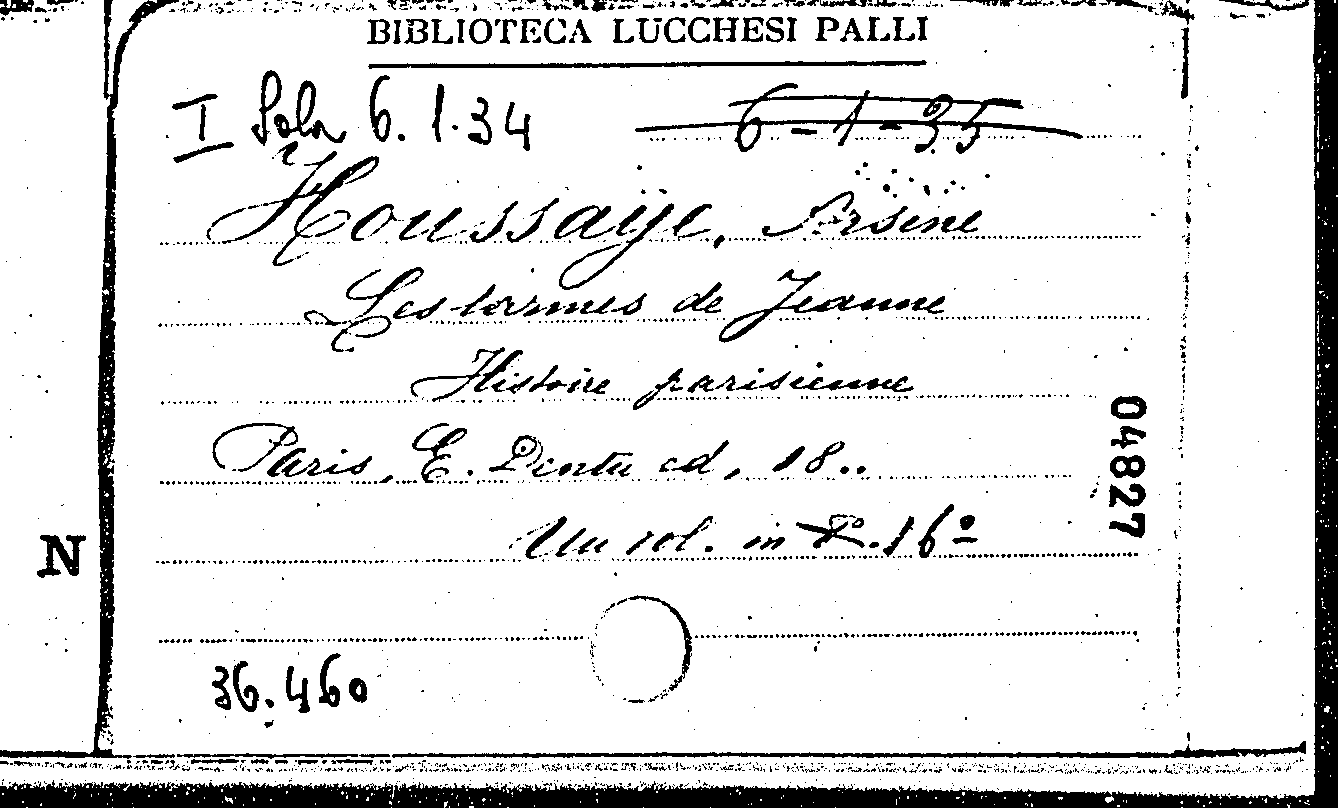 BIBLIOTECA LUCCHESI PALLI
I Sala 6. 1.34 6-1-35
Houssaÿe, Arsène
Les larmes de Jeanne
Histoire parisienne
Paris, E. Dentu ed, 18..
Un vol. in 16º
04827
N
36.460